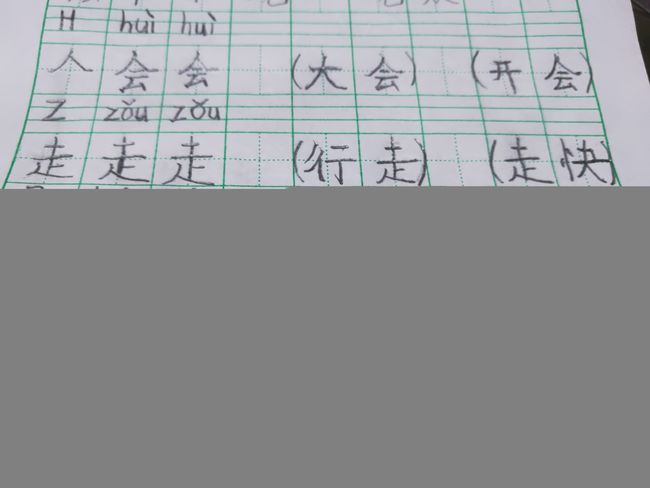 H huì huì
人 会 会 (大会) (开会)
Z zǒu zǒu
走 走 走 (行走) (走快)